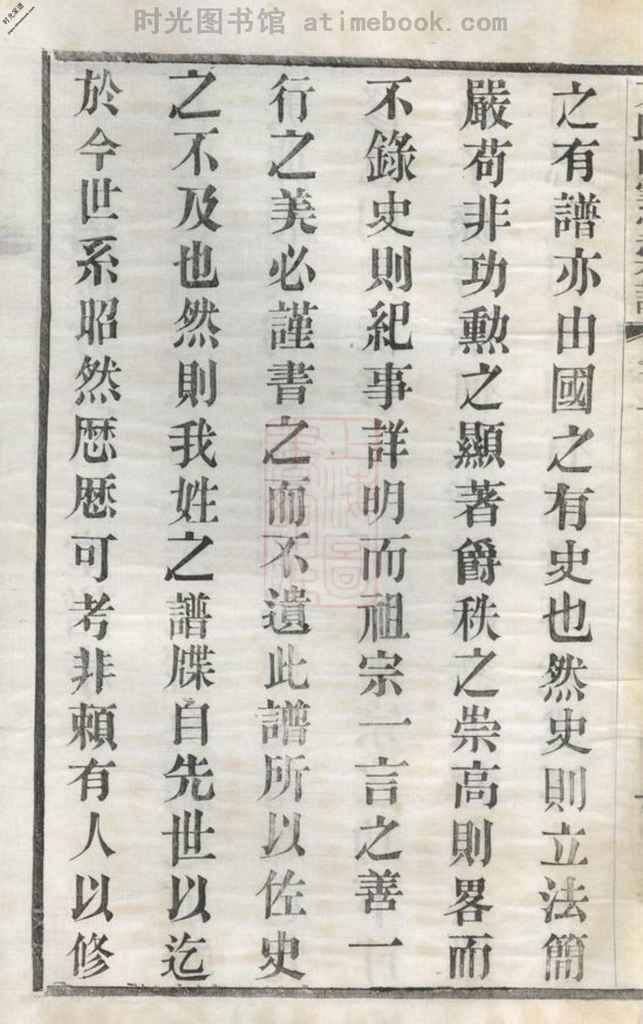 时光图书馆 - atimebook.com
之有譜亦由國之有史也然史則立法簡
嚴苟非功勲之顯著爵秩之崇高則畧而
不錄史則紀事詳明而祖宗一言之善一
行之美必謹書之而不遺此譜所以佐史
之不及也然則我姓之譜牒自先世以迄
於今世系昭然厯厯可考非頼有人以修